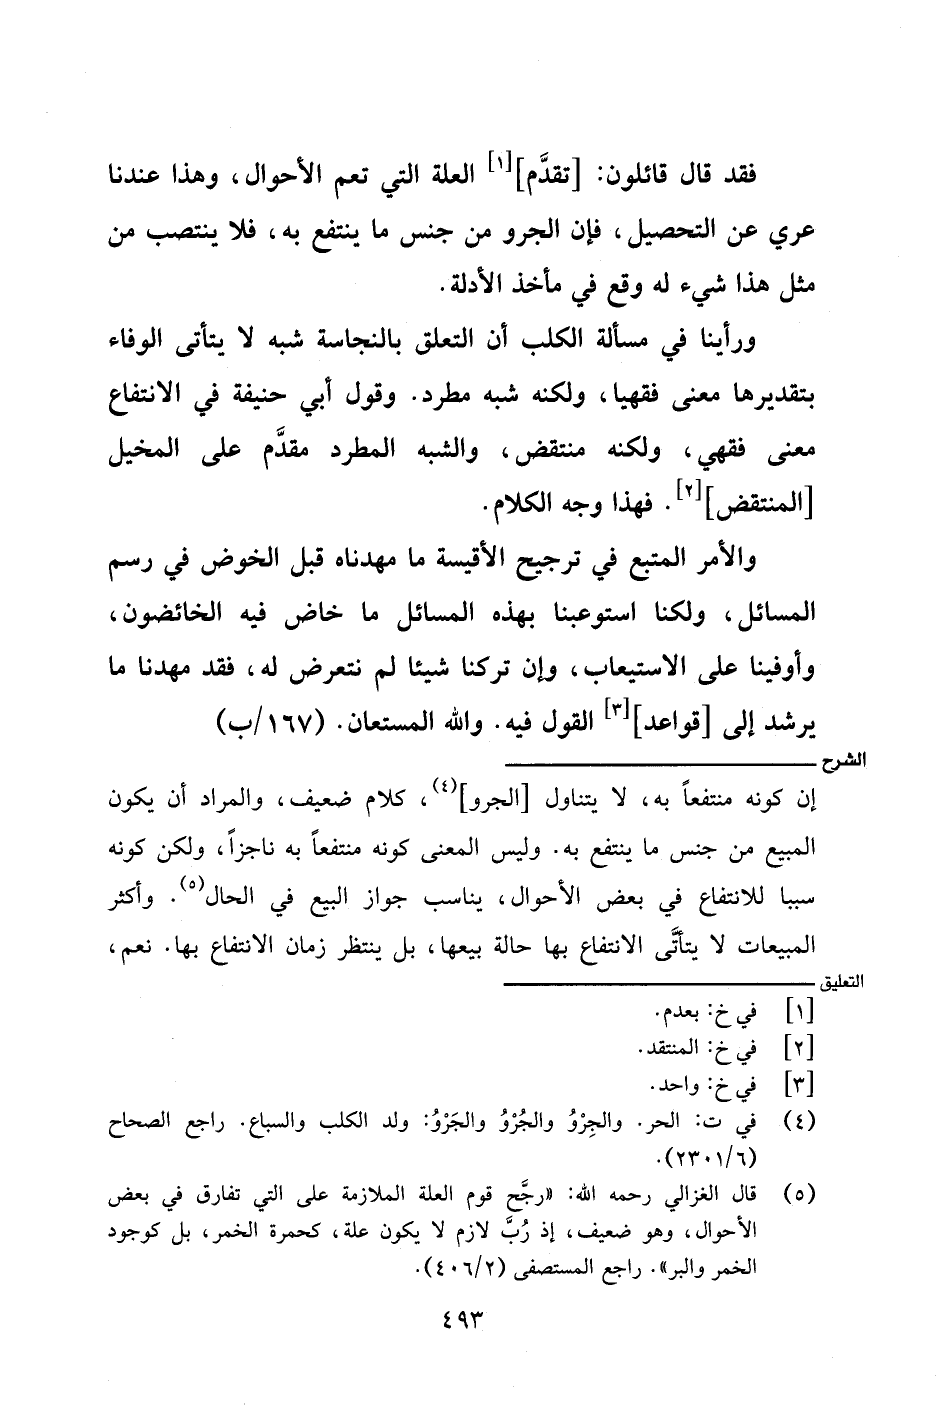 فقد قال قائلون: [تقدَّم][١] العلة التي تعم الأحوال، وهذا عندنا
عري عن التحصيل، فإن الجرو من جنس ما ينتفع به، فلا ينتصب من
مثل هذا شيء له وقع في مأخذ الأدلة.
ورأينا في مسألة الكلب أن التعلق بالنجاسة شبه لا يتأتى الوفاء
بتقديرها معنى فقهيا، ولكنه شبه مطرد. وقول أبي حنيفة في الانتفاع
معنى فقهي، ولكنه منتقض، والشبه المطرد مقدَّم على المخيل
[المنتقض][٢]. فهذا وجه الكلام.
والأمر المتبع في ترجيح الأقيسة ما مهدناه قبل الخوض في رسم
المسائل، ولكنا استوعبنا بهذه المسائل ما خاض فيه الخائضون،
وأوفينا على الاستيعاب، وإن تركنا شيئا لم نتعرض له، فقد مهدنا ما
يرشد إلى [قواعد][٣] القول فيه. والله المستعان. (١٦٧/ب)
الشرح
إن كونه منتفعاً به، لا يتناول [الجرو](٤)، كلام ضعيف، والمراد أن يكون
المبيع من جنس ما ينتفع به. وليس المعنى كونه منتفعاً به ناجزاً، ولكن كونه
سببا للانتفاع في بعض الأحوال، يناسب جواز البيع في الحال(٥). وأكثر
المبيعات لا يتأتَّى الانتفاع بها حالة بيعها، بل ينتظر زمان الانتفاع بها. نعم،
التعليق
[١] في خ: بعدم.
[٢] في خ: المنتقد.
[٣] في خ: واحد.
(٤) في ت: الحر. والجِرْوُ والجُرْوُ والجَرْوُ: ولد الكلب والسباع. راجع الصحاح
(٢٣٠١/٦).
(٥) قال الغزالي رحمه الله: «رجَّح قوم العلة الملازمة على التي تفارق في بعض
الأحوال، وهو ضعيف، إذ رُبَّ لازم لا يكون علة، كحمرة الخمر، بل كوجود
الخمر والبر». راجع المستصفى (٤٠٦/٢).
٤٩٣